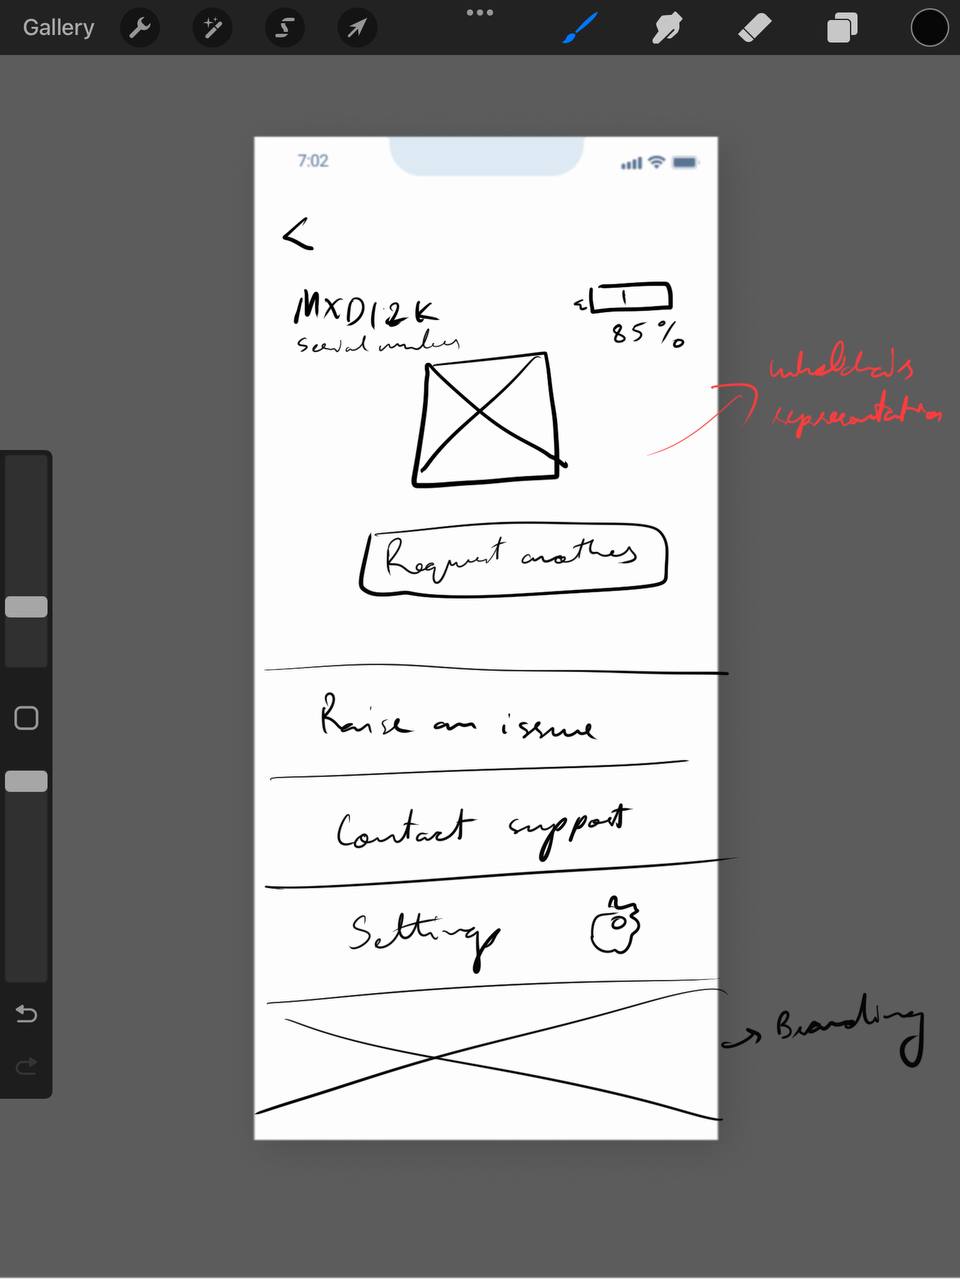 Gallery
7:02
<
MXD12K
serial number
85%
wheelchair's
representation
Request another
Raise an issue
Contact support
Settings
→ Branding